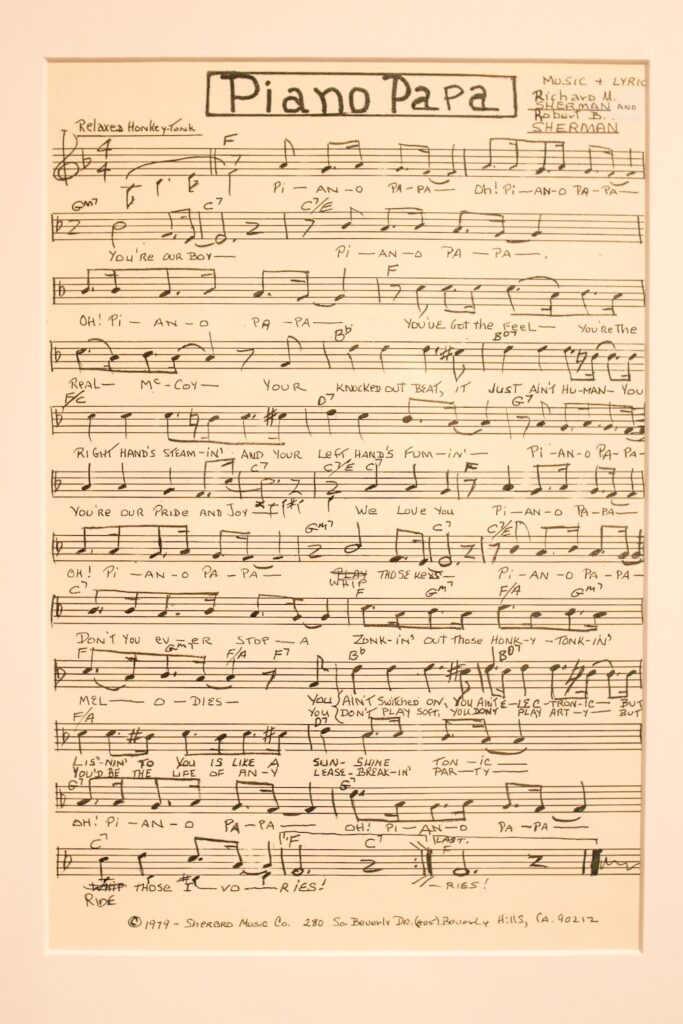 Piano Papa
MUSIC + LYRIC
Richard M.
SHERMAN AND
Robert B.
SHERMAN
Relaxed Honkey-Tonk
F
PI-AN-O PA-PA- Oh! PI-AN-O PA-PA-
Gm7 C7 C7/E
YOU'RE OUR BOY- PI-AN-O PA-PA-.
F
OH! PI-AN-O PA-PA- YOU'VE GOT the FEEL- YOU'RE THE
Bb B07
REAL- Mc-COY- YOUR KNOCKED OUT BEAT, IT JUST AIN'T HU-MAN- YOU
F/C D7 G7
RIGHT HAND'S STEAM-IN' AND YOUR LEFT HAND'S FUM-IN'- PI-AN-O PA-PA-
C7 C7/E C7 F
YOU'RE OUR PRIDE AND JOY- WE LOVE YOU PI-AN-O PA-PA-
Gm7 C7 C7/E
OH! PI-AN-O PA-PA- PLAY THOSE KEYS- PI-AN-O PA-PA-
WHIP
C7 F Gm7 F/A Gm7
DON'T YOU EV-ER STOP-A ZONK-IN' OUT THOSE HONK-Y-TONK-IN'
F Gm7 F/A F7 Bb B07
MEL-O-DIES- YOU AIN'T SWITCHED ON, YOU AIN'T E-LEC-TRON-IC- BUT
YOU DON'T PLAY SOFT, YOU DON'T PLAY ART-Y- BUT
F/A D7
LIS'-NIN' TO YOU IS LIKE A SUN-SHINE TON-IC-
YOU'D BE THE LIFE OF AN-Y LEASE-BREAK-IN' PAR-TY-
G7 G7
OH! PI-AN-O PA-PA- OH! PI-AN-O PA-PA-
C7 1. F C7 LAST. F
WHIP THOSE I-VO-RIES! -RIES!
RIDE
© 1979 - SHERBRO MUSIC CO. 280 So. Beverly DR. (#05). Beverly Hills, CA. 90212